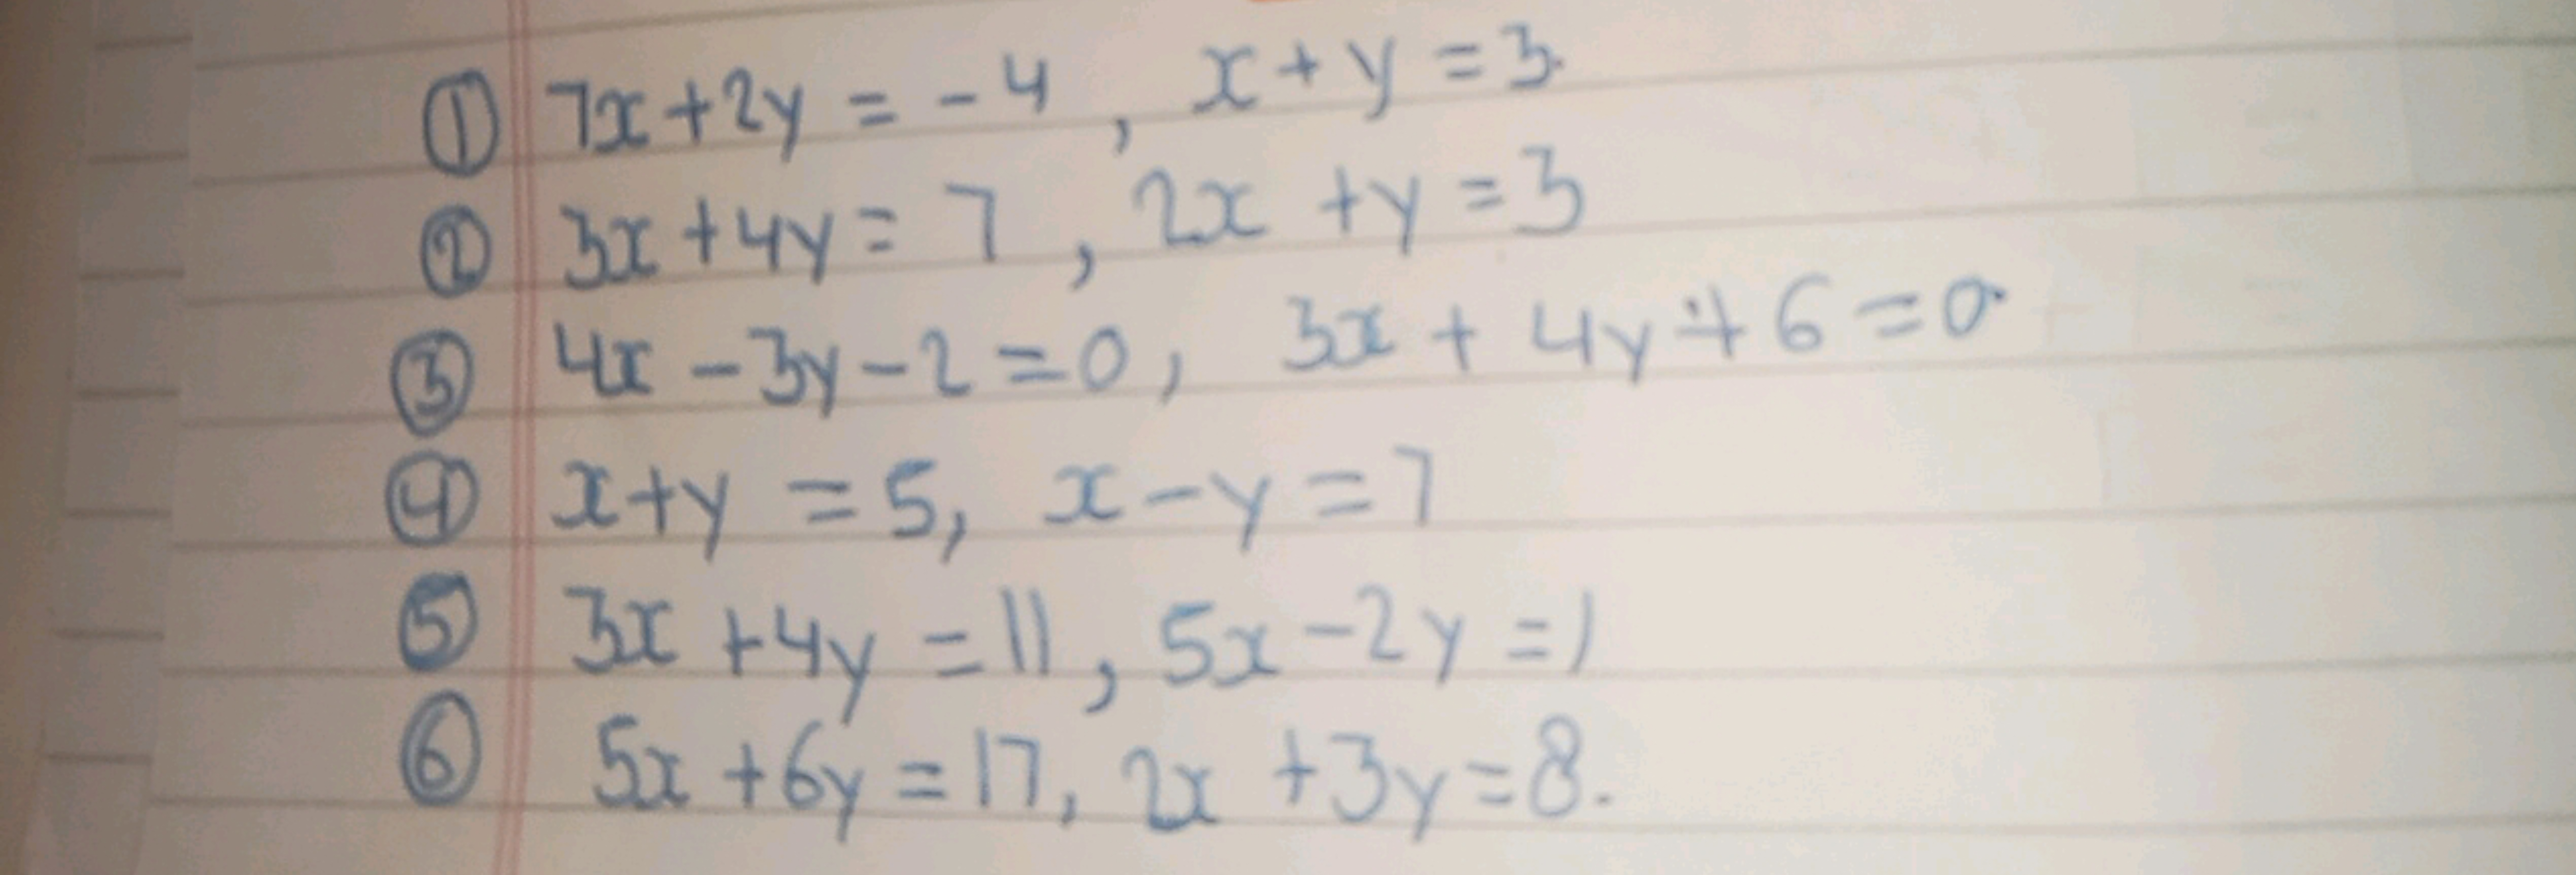 ① 7x+2y = -4 , x+y=3.
② 3x+4y = 7 , 2x +y=3
③ 4x-3y-2=0, 3x + 4y+6=0
④ x+y =5, x-y=7
⑤ 3x +4y =11, 5x-2y =1
⑥ 5x +6y=17, 2x +3y=8.